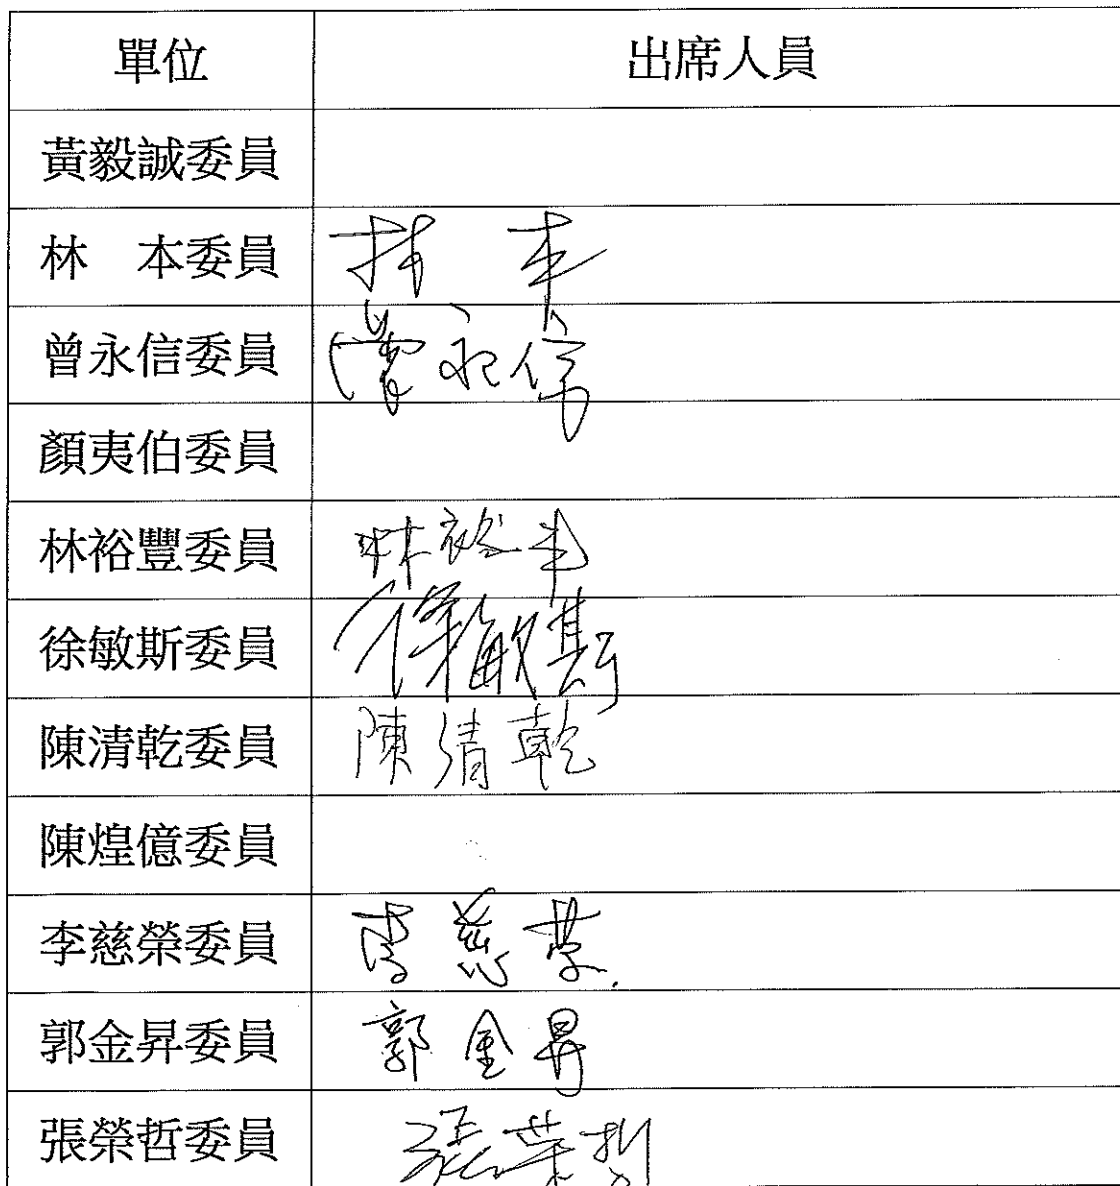 單位 出席人員
黃毅誠委員
林 本委員 林 本
曾永信委員 曾永信
顏夷伯委員
林裕豐委員 林裕丰
徐敏斯委員 徐敏斯
陳清乾委員 陳清乾
陳煌億委員
李慈榮委員 李慈荣
郭金昇委員 郭金昇
張榮哲委員 張荣哲